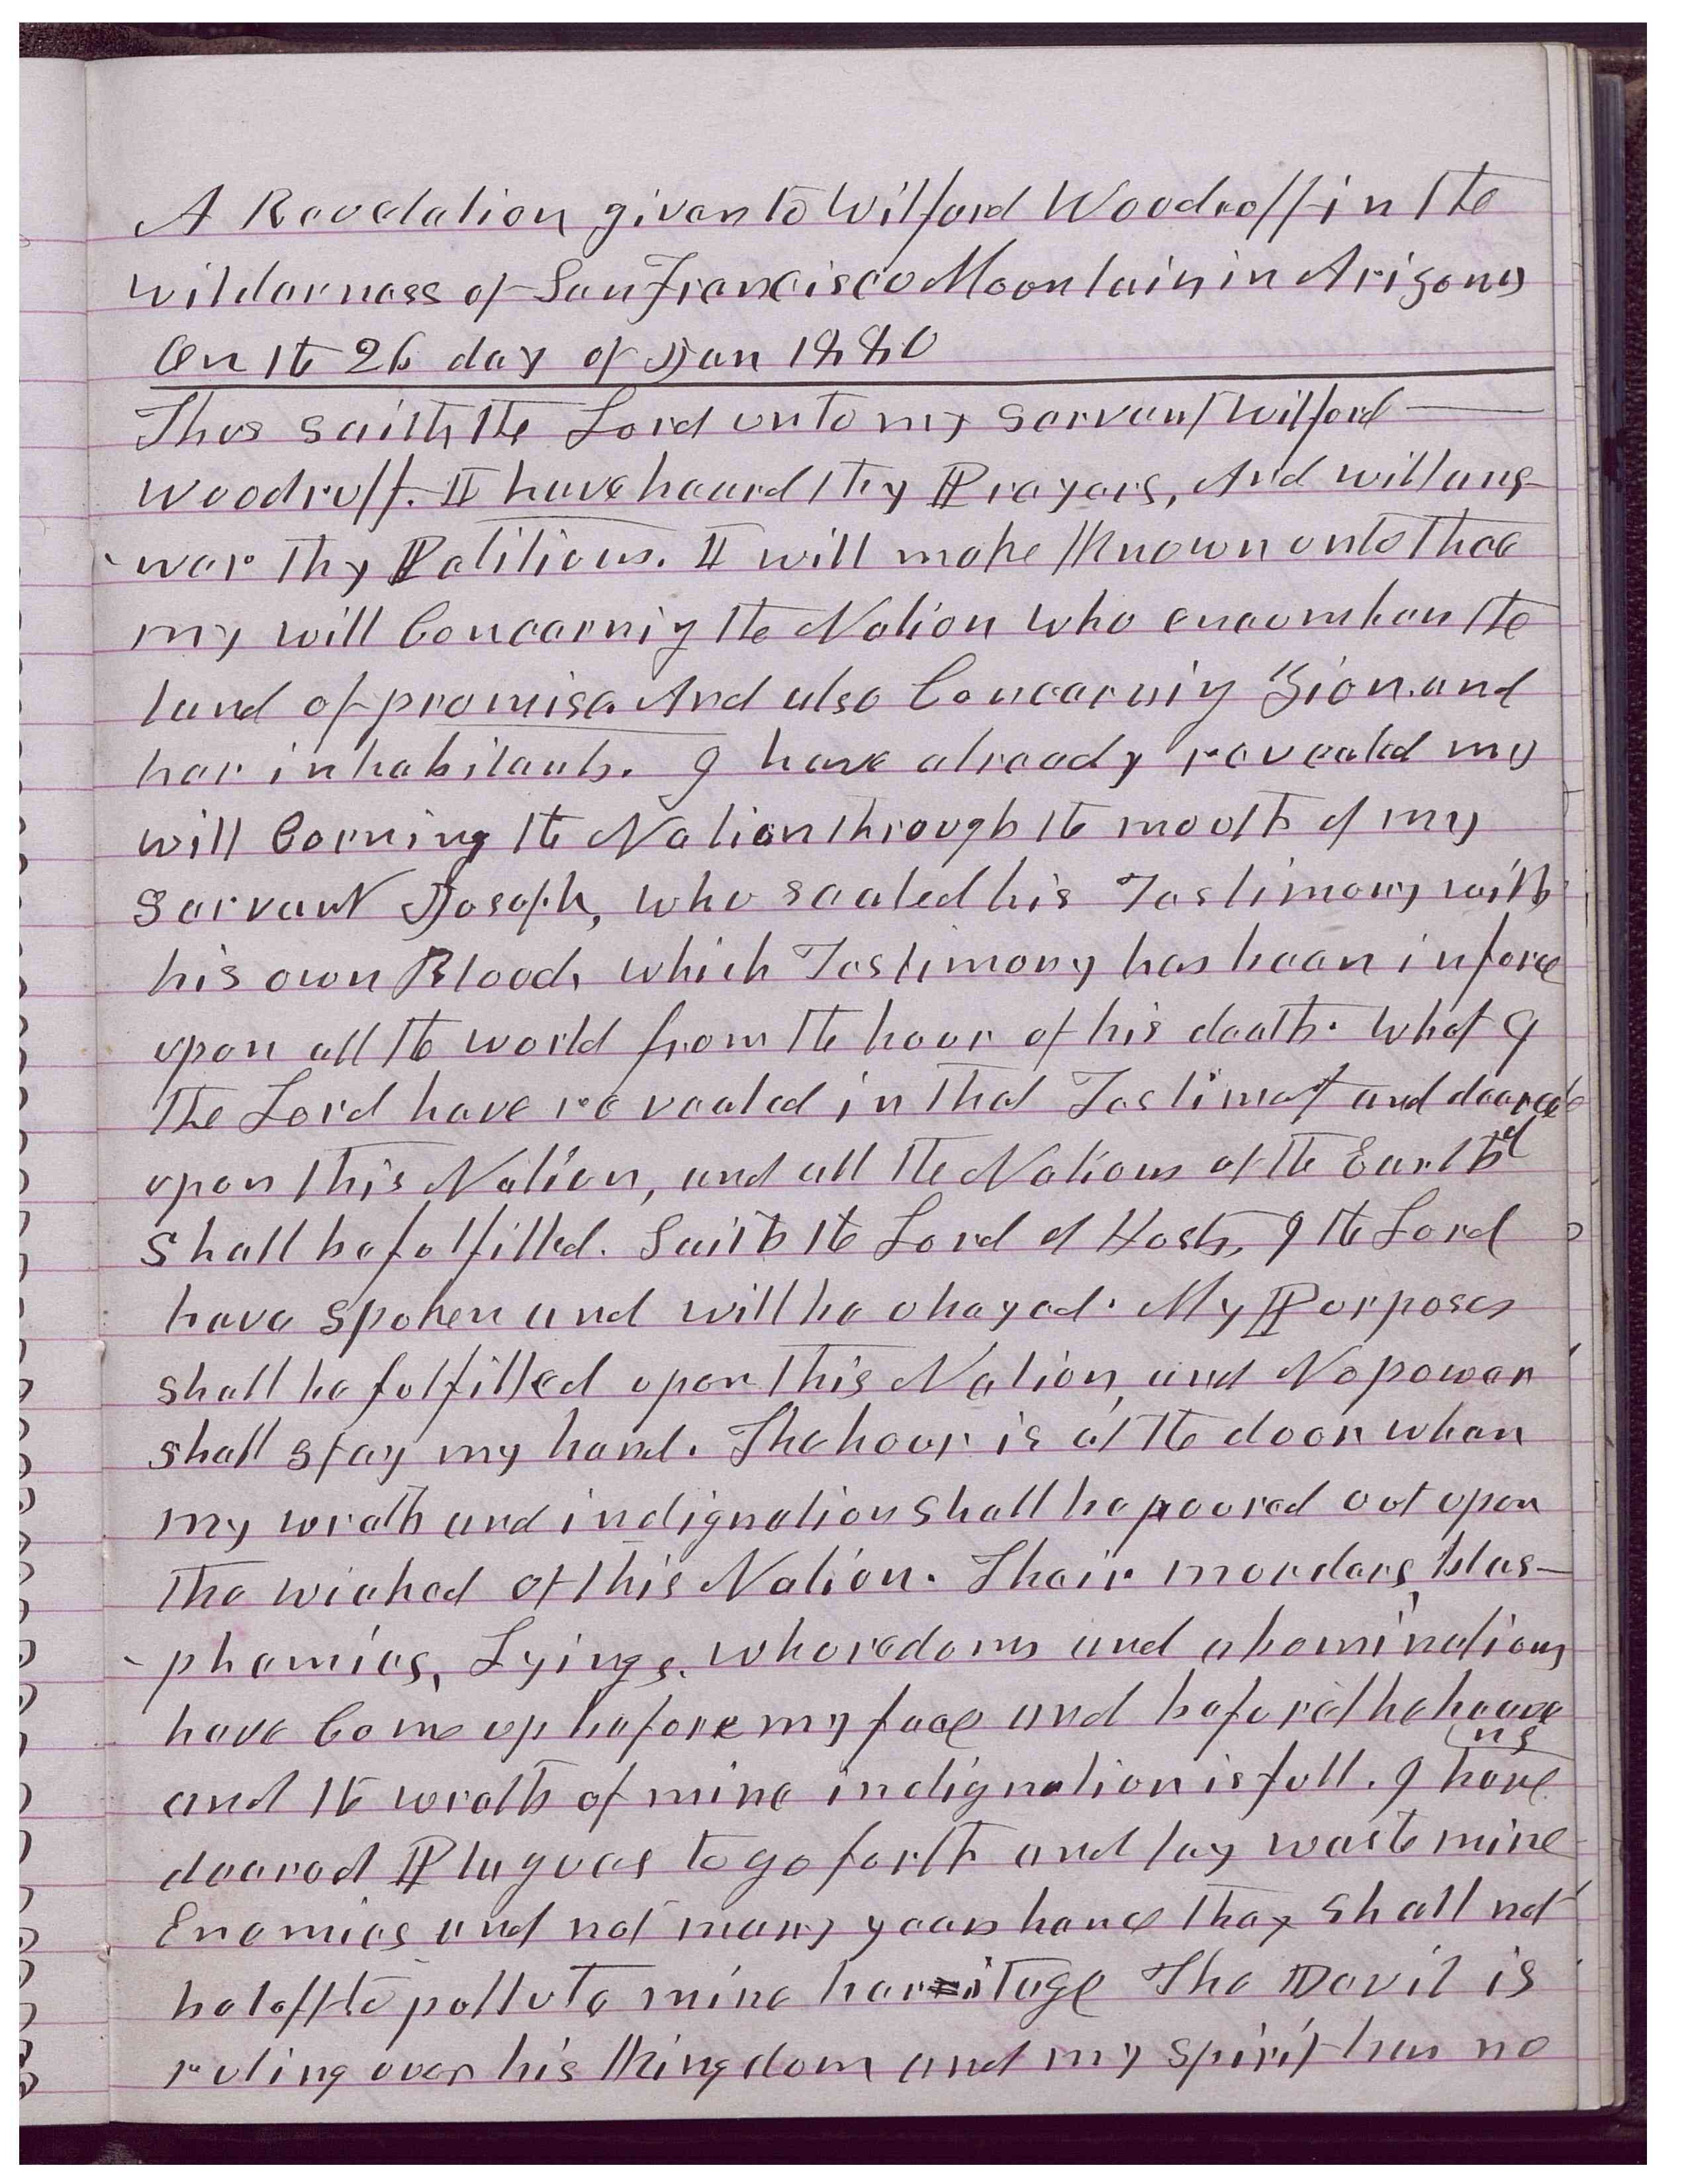 A Revelation given to Wilford Woodruff in the
wilderness of San Francisco Mountain in Arizona
On the 26 day of Jan 1880
Thus saith the Lord unto my servant Wilford
Woodruff. I have heard thy Prayers, And will ans-
-wer thy Petitions. I will make Known unto thee
my will Concerning the Nation who encumber the
land of promise. And also Concerning Zion and
her inhabitants. I have already revealed my
will Conrning the Nation through the mouth of my
Servant Joseph, who sealed his Testimony with
his own Blood, which Testimony has been in force
upon all the world from the hour of his death. What I
the Lord have revealed in that Testimot and decree
d
upon this Nation, and all the Nations of the Earth
shall be fulfilled. Saith the Lord of Hosts, I the Lord
have spoken and will be obeyed. My Purposes
shall be fulfilled upon this Nation and No power
shall stay my hand. The hour is at the door when
my wrath and indignation shall be poured out upon
the wicked of this Nation. Their murders, blas-
-phemies, Lyings, whoredoms and abominations
have Come up before my face and before the heave
ns
and the wrath of mine indignation is full. I have
decred Plagues to go forth and lay waste mine
Enemies and not many years hence they shall not
be left to pollute mine heritage The Devil is
ruling over his Kingdom and my spirit has no